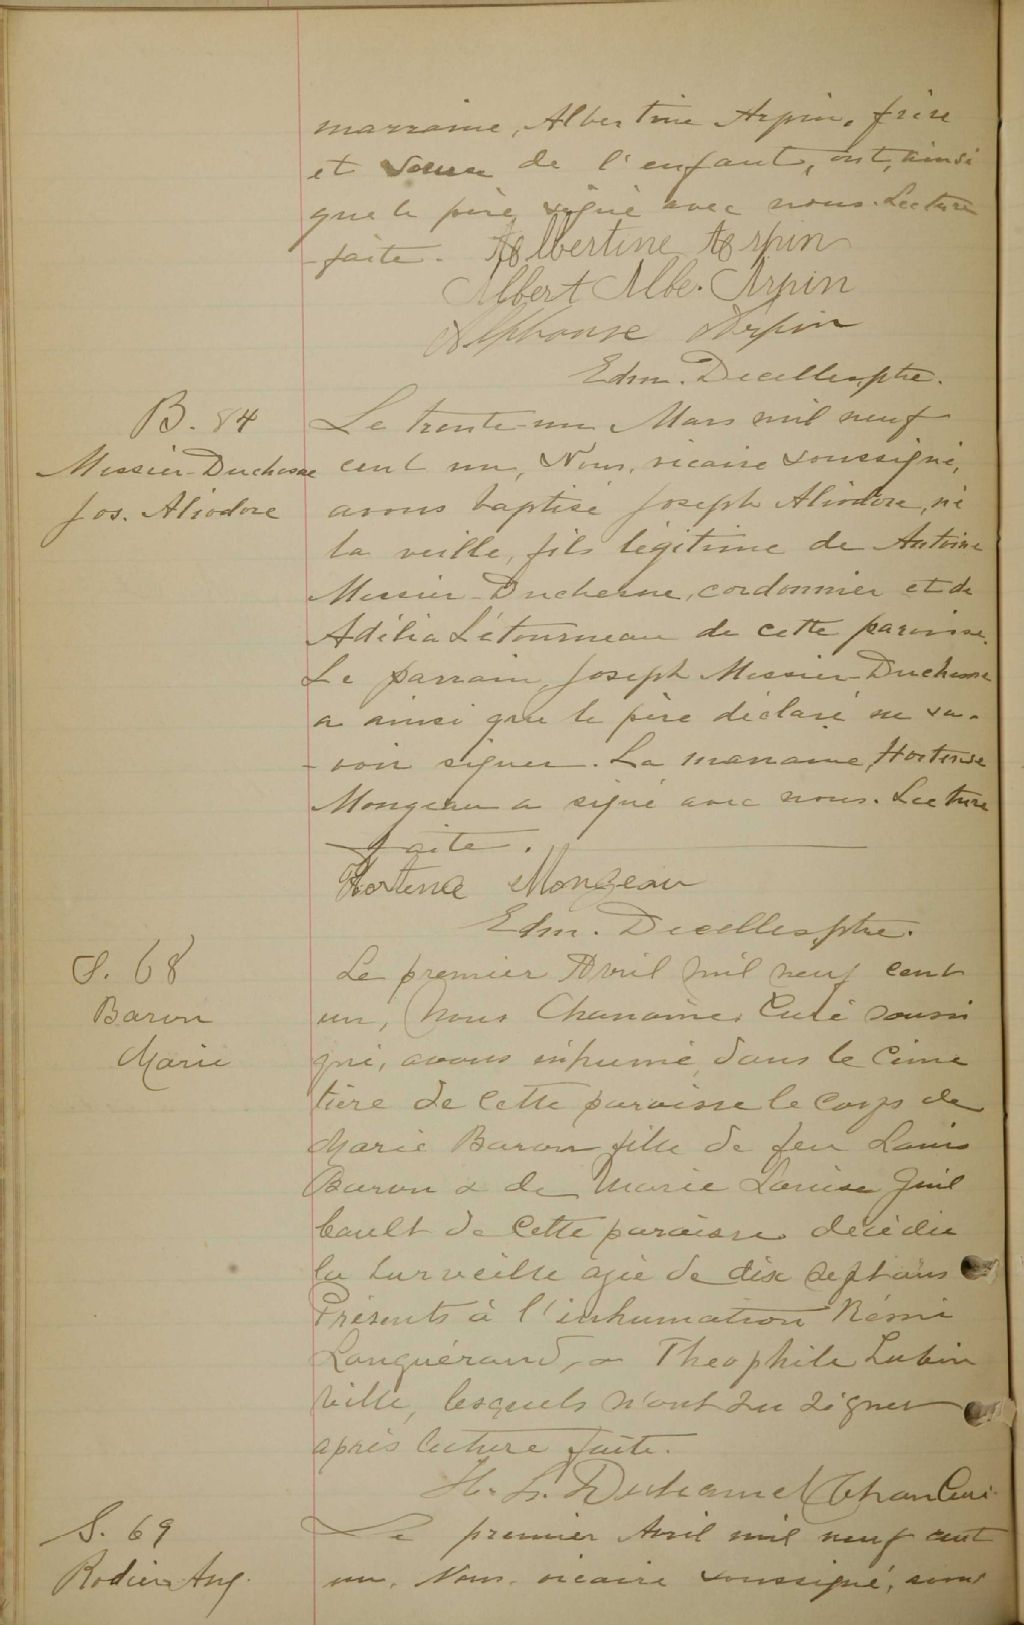 marraine, Albertine Arpin, frère
et soeur de l'enfant, ont, ainsi
que le père, signé avec nous. Lecture
faite. Albertine Arpin
Albert Albe. Arpin
Alphonse Arpin
Edm. Decelles, ptre.
B. 84
Messier-Duchesne
Jos. Aliodore
Le trente-un Mars mil neuf
cent un, Nous, vicaire soussigné,
avons baptisé Joseph Aliodore, né
la veille, fils légitime de Antoine
Messier-Duchesne, cordonnier et de
Adélia Létourneau de cette paroisse.
Le parrain, Joseph Messier-Duchesne
a ainsi que le père déclaré ne sa-
-voir signer. La marraine, Hortense
Mongeau a signé avec nous. Lecture
faite.
Hortense Mongeau
Edm. Decelles, ptre.
S. 68
Baron
Marie
Le premier Avril mil neuf cent
un, Nous Chanoine, Curé soussi
gné, avons inhumé, dans le cime
tière de cette paroisse le corps de
Marie Baron fille de feu Louis
Baron & de Marie Louise Guil
bault de cette paroisse décédée
la surveille agée de dix sept ans
Présents à l'inhumation Rémi
Languérand, & Theophile Lubin
ville, lesquels n'ont su signer
après lecture faite.
H. L. Duhamel Chan Curé.
S. 69
Rodier Aug.
Le premier Avril mil neuf cent
un, Nous, vicaire soussigné, avons